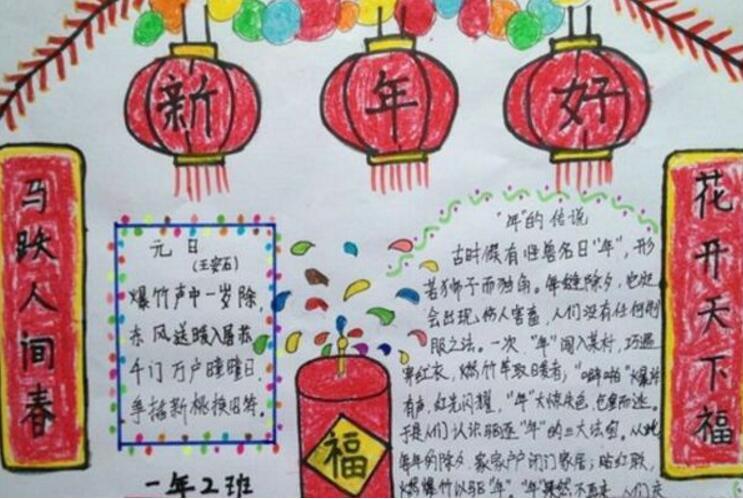 新年好
马跃人间春
元日
(王安石)
爆竹声中一岁除,
东风送暖入屠苏
千门万户曈曈日,
手
新桃换旧符。
一年2班
福
"年"的传说
古时候有怪兽名曰"年",形
若狮子而独角。每逢除夕,也
会出现,伤人害畜,人们没有任何制
服之法。一次,"年"闯入某村,巧遇
穿红衣,燃竹竿取暖者;"噼啪"爆炸
有声,红光闪耀,"年"大惊失色,仓皇而逃。
于是人们认识驱逐"年"的三大法宝。从此
每年的除夕,家家户户闭门家居;贴红联,
燃爆竹以驱"年","年"果然不再来,人们
花开天下福